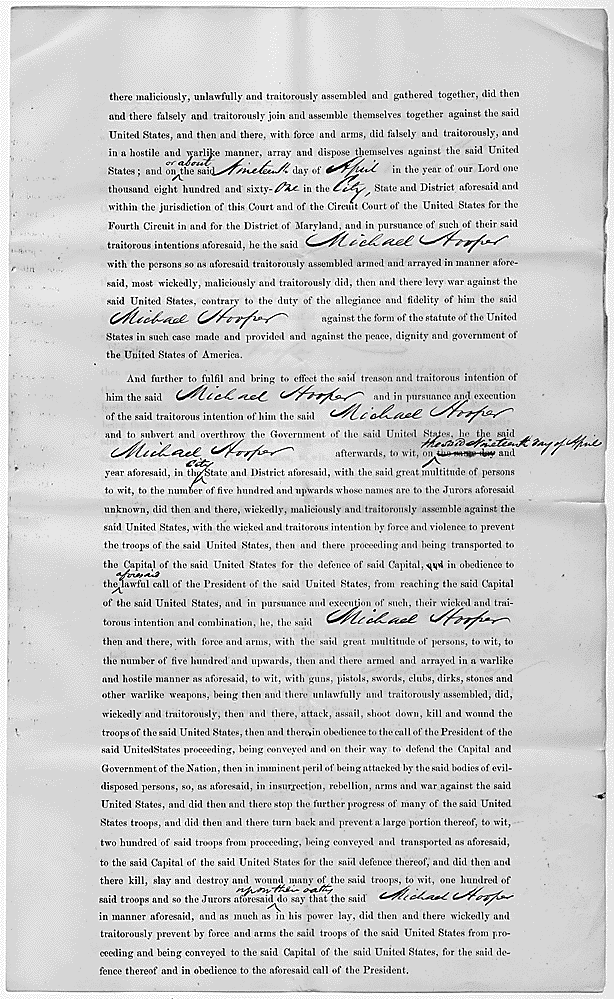 there maliciously, unlawfully and traitorously assembled and gathered together, did then
and there falsely and traitorously join and assemble themselves together against the said
United States, and then and there, with force and arms, did falsely and traitorously, and
in a hostile and warlike manner, array and dispose themselves against the said United
or about
States; and on the said Nineteenth day of April in the year of our Lord one
thousand eight hundred and sixty-One in the City, State and District aforesaid and
within the jurisdiction of this Court and of the Circuit Court of the United States for the
Fourth Circuit in and for the District of Maryland, and in pursuance of such of their said
traitorous intentions aforesaid, he the said Michael Hooper
with the persons so as aforesaid traitorously assembled armed and arrayed in manner afore-
said, most wickedly, maliciously and traitorously did, then and there levy war against the
said United States, contrary to the duty of the allegiance and fidelity of him the said
Michael Hooper against the form of the statute of the United
States in such case made and provided and against the peace, dignity and government of
the United States of America.
And further to fulfil and bring to effect the said treason and traitorous intention of
him the said Michael Hooper and in pursuance and execution
of the said traitorous intention of him the said Michael Hooper
and to subvert and overthrow the Government of the said United States, he the said
the said Nineteenth day of April
Michael Hooper afterwards, to wit, on the same day and
City
year aforesaid, in the State and District aforesaid, with the said great multitude of persons
to wit, to the number of five hundred and upwards whose names are to the Jurors aforesaid
unknown, did then and there, wickedly, maliciously and traitorously assemble against the
said United States, with the wicked and traitorous intention by force and violence to prevent
the troops of the said United States, then and there proceeding and being transported to
the Capital of the said United States for the defence of said Capital, and in obedience to
aforesaid
the lawful call of the President of the said United States, from reaching the said Capital
of the said United States, and in pursuance and execution of such, their wicked and trai-
torous intention and combination, he, the said Michael Hooper
then and there, with force and arms, with the said great multitude of persons, to wit, to
the number of five hundred and upwards, then and there armed and arrayed in a warlike
and hostile manner as aforesaid, to wit, with guns, pistols, swords, clubs, dirks, stones and
other warlike weapons, being then and there unlawfully and traitorously assembled, did,
wickedly and traitorously, then and there, attack, assail, shoot down, kill and wound the
troops of the said United States, then and there,in obedience to the call of the President of the
said UnitedStates proceeding, being conveyed and on their way to defend the Capital and
Government of the Nation, then in imminent peril of being attacked by the said bodies of evil-
disposed persons, so, as aforesaid, in insurrection, rebellion, arms and war against the said
United States, and did then and there stop the further progress of many of the said United
States troops, and did then and there turn back and prevent a large portion thereof, to wit,
two hundred of said troops from proceeding, being conveyed and transported as aforesaid,
to the said Capital of the said United States for the said defence thereof, and did then and
there kill, slay and destroy and wound many of the said troops, to wit, one hundred of
upon their oaths
said troops and so the Jurors aforesaid do say that the said Michael Hooper
in manner aforesaid, and as much as in his power lay, did then and there wickedly and
traitorously prevent by force and arms the said troops of the said United States from pro-
ceeding and being conveyed to the said Capital of the said United States, for the said de-
fence thereof and in obedience to the aforesaid call of the President.